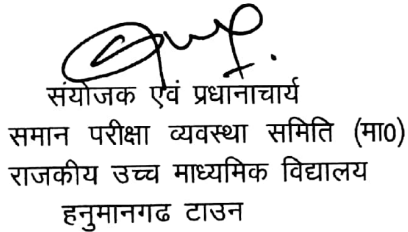 संयोजक एवं प्रधानाचार्य
समान परीक्षा व्यवस्था समिति (मा0)
राजकीय उच्च माध्यमिक विद्यालय
हनुमानगढ टाउन